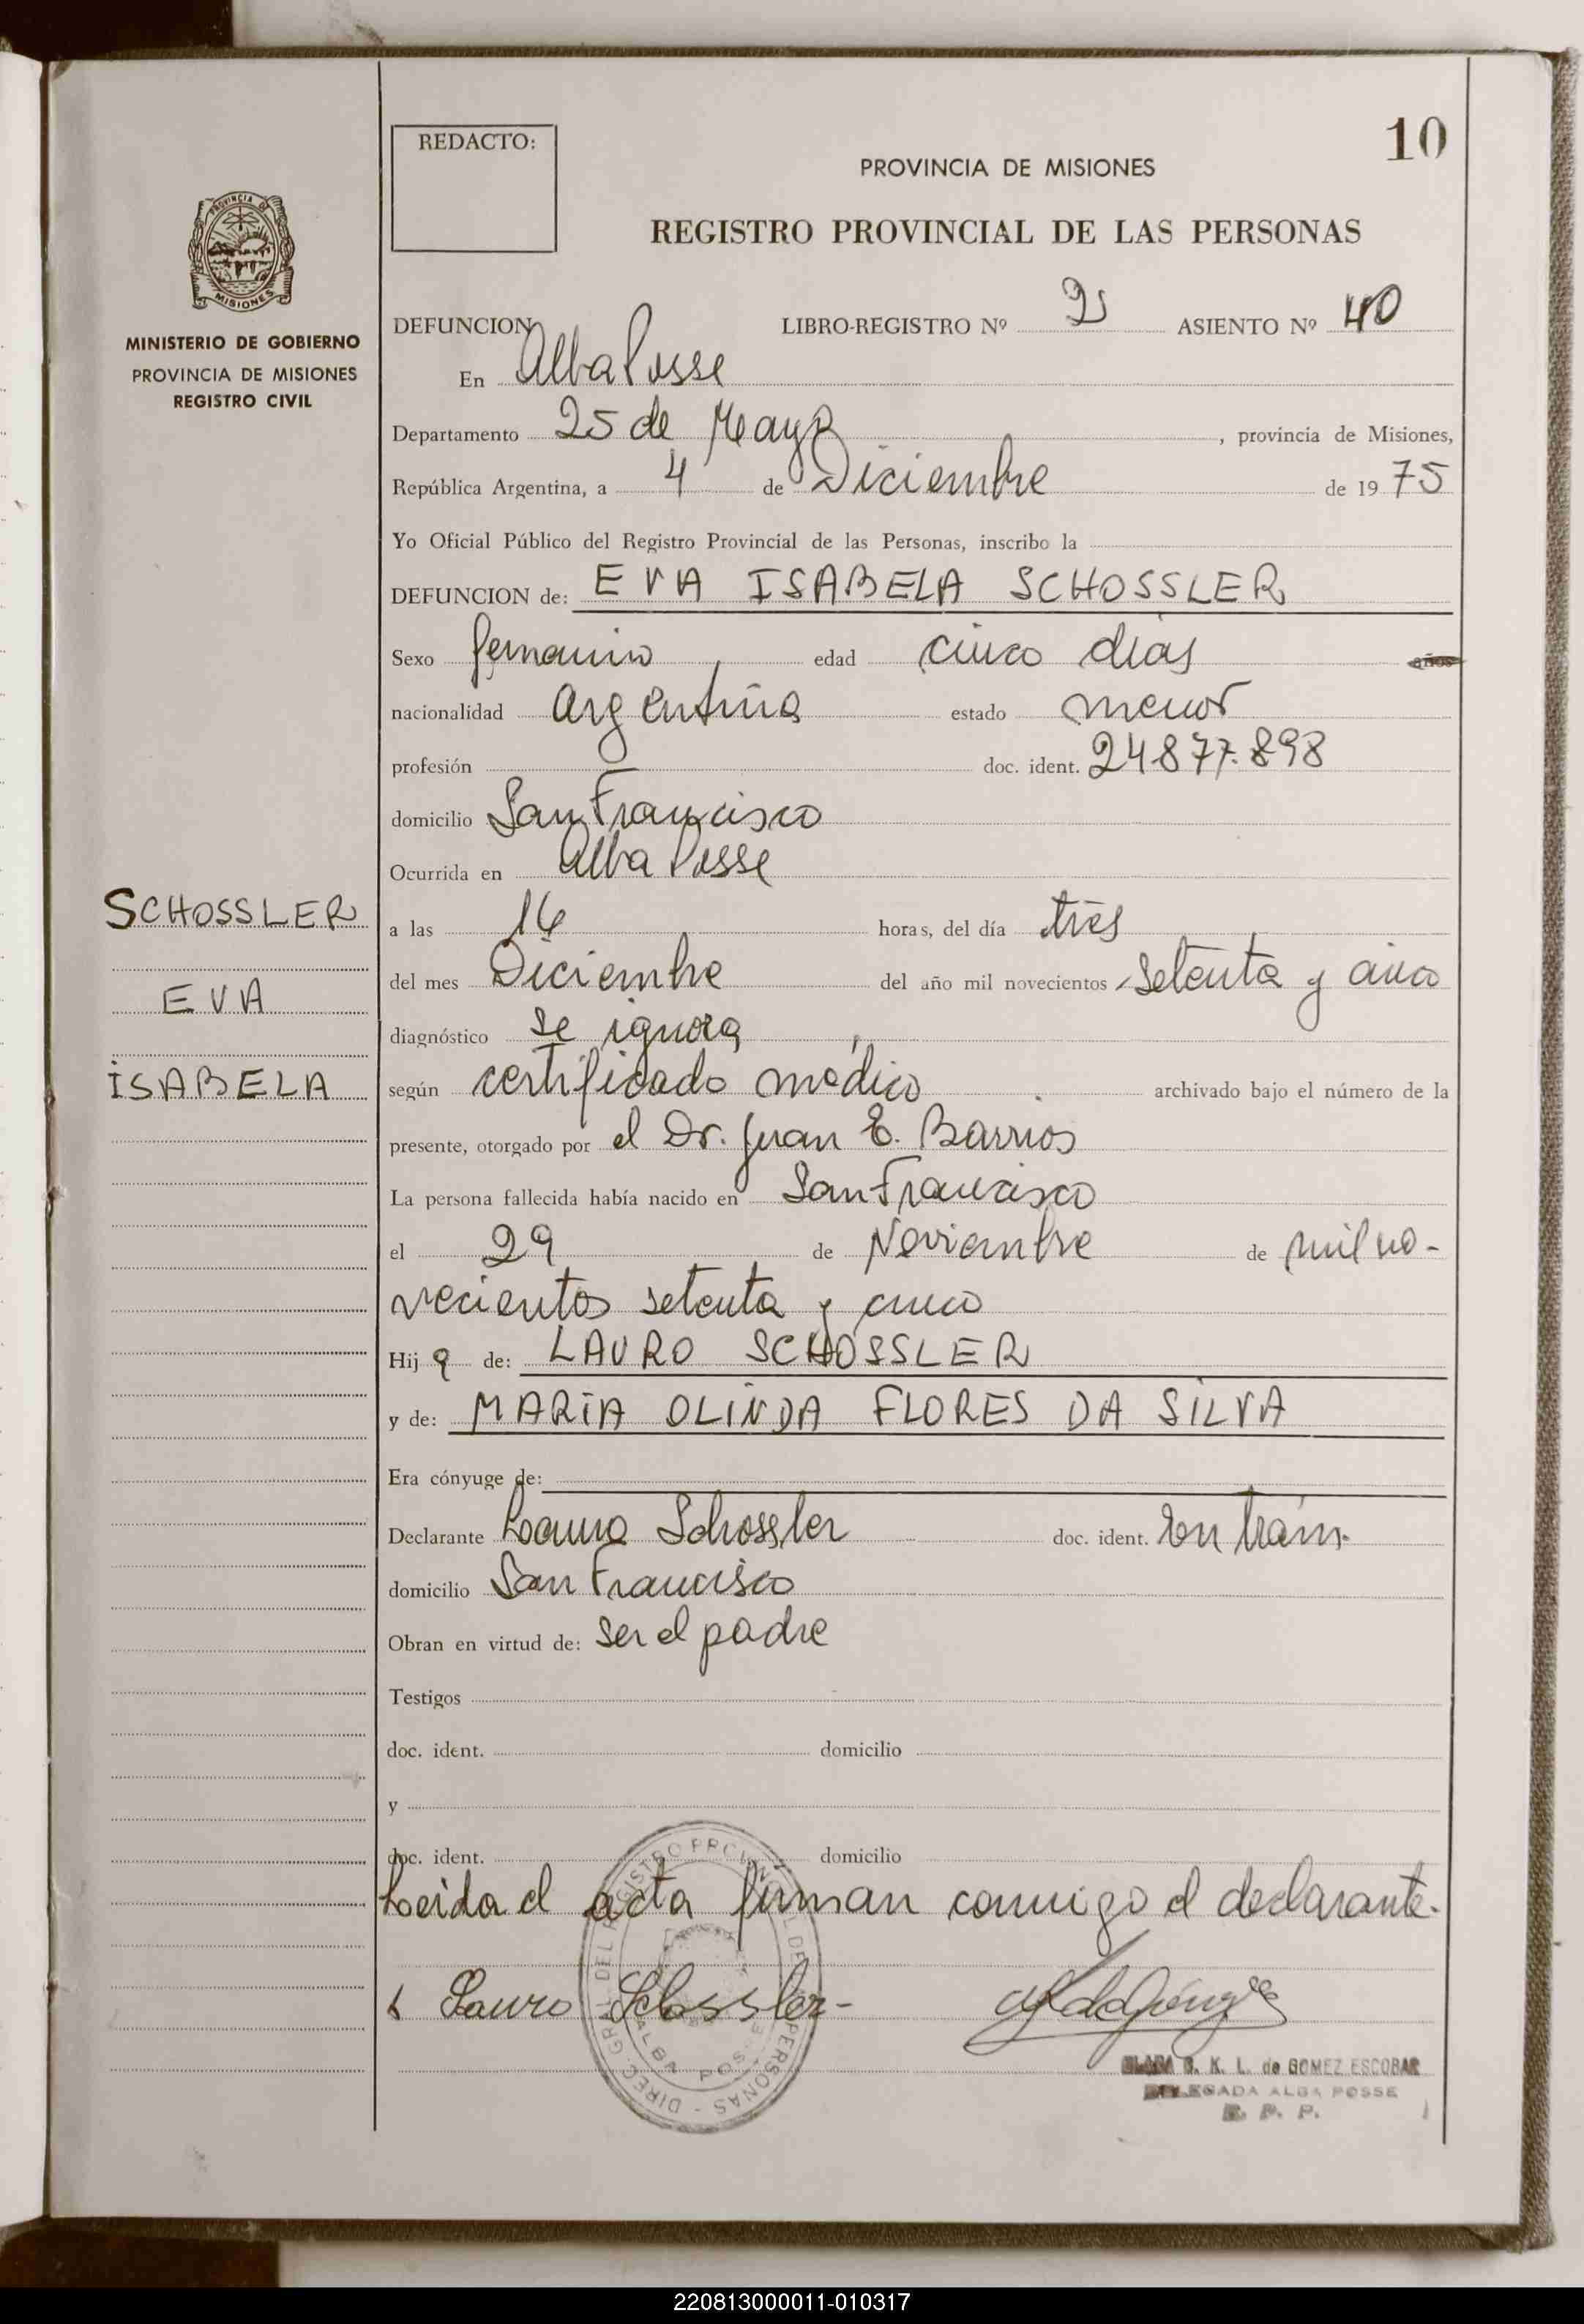 10
REDACTO:
PROVINCIA DE MISIONES
REGISTRO PROVINCIAL DE LAS PERSONAS
PROVINCIA DE MISIONES
MINISTERIO DE GOBIERNO
PROVINCIA DE MISIONES
REGISTRO CIVIL
DEFUNCION LIBRO-REGISTRO Nº 2 ASIENTO Nº 40
En Alba Posse
Departamento 25 de Mayo, provincia de Misiones,
República Argentina, a 4 de Diciembre de 1975
Yo Oficial Público del Registro Provincial de las Personas, inscribo la
DEFUNCION de: EVA ISABELA SCHOSSLER
Sexo femenino edad cinco días años
nacionalidad argentina estado menor
profesión doc. ident. 24.877.898
domicilio San Francisco
Ocurrida en Alba Posse
SCHOSSLER
EVA
ISABELA
a las 16 horas, del día tres
del mes Diciembre del año mil novecientos setenta y cinco
diagnóstico se ignora
según certificado médico archivado bajo el número de la
presente, otorgado por el Dr. Juan E. Barrios
La persona fallecida había nacido en San Francisco
el 29 de Noviembre de mil no-
vecientos setenta y cinco
Hija de: LAURO SCHOSSLER
y de: MARIA OLINDA FLORES DA SILVA
Era cónyuge de:
Declarante Lauro Schossler doc. ident. En trám.
domicilio San Francisco
Obran en virtud de: ser el padre
Testigos
doc. ident. domicilio
y
doc. ident. domicilio
Leida el acta firman conmigo el declarante.
Lauro Schossler-
DIREC. GRAL. DEL REGISTRO PROVINCIAL DE PERSONAS -
ALBA POSSE
K. L. de GOMEZ ESCOBAR
DELEGADA ALBA POSSE
R. P. P.
220813000011-010317